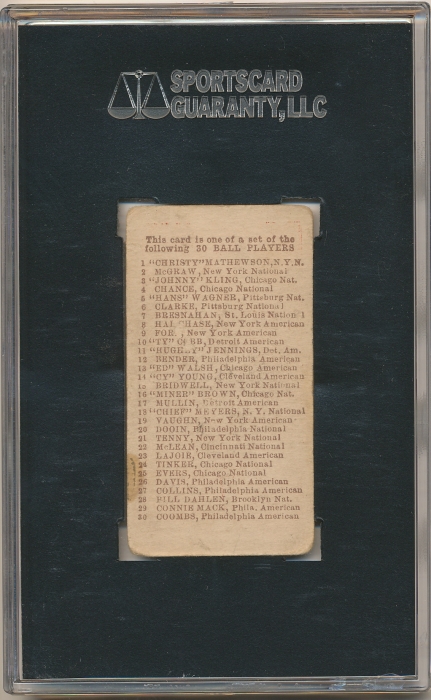 SPORTSCARD
GUARANTY, LLC
This card is one of a set of the
following 30 BALL PLAYERS
1 "CHRISTY" MATHEWSON, N.Y.N.
2 McGRAW, New York National
3 "JOHNNY" KLING, Chicago Nat.
4 CHANCE, Chicago National
5 "HANS" WAGNER, Pittsburg Nat.
6 CLARKE, Pittsburg National
7 BRESNAHAN, St. Louis National
8 HAL CHASE, New York American
9 New York American
10 "TY" COBB, Detroit American
11 "HUGEY" JENNINGS, Det. Am.
12 BENDER, Philadelphia American
13 "ED" WALSH, Chicago American
14 "CY" YOUNG, Cleveland American
15 BRIDWELL, New York National
16 "MINER" BROWN, Chicago Nat.
17 MULLIN, Detroit American
18 "CHIEF" MEYERS, N. Y. National
19 VAUGHN, New York American
20 DOOIN, Philadelphia National
21 TENNY, New York National
22 McLEAN, Cincinnati National
23 LAJOIE, Cleveland American
24 TINKER, Chicago National
25 EVERS, Chicago National
26 DAVIS, Philadelphia American
27 COLLINS, Philadelphia American
28 BILL DAHLEN, Brooklyn Nat.
29 CONNIE MACK, Phila. American
30 COOMBS, Philadelphia American